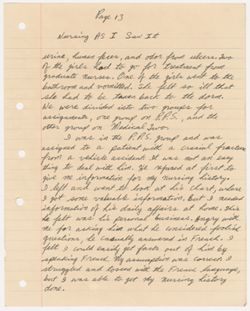 Page 13
Nursing As I Saw It
urine, human feces, and odor from ulcers. Two
of the girls had to go for treatment from
graduate nurses. One of the girls went to the
bathroom and vomitted. She felt so ill that
she had to be taken back to the dorm.
We were divided into two groups for
assignments, one group on P.P.S. and the
other group on Medical Two.
I was in the P.P.S. group and was
assigned to a patient with a cranial fracture
from a vehicle accident. It was not an easy
thing to deal with him. He refused at first to
give me information for my nursing history.
I left and went to look at his chart, where
I got some valuable information. But I needed
information of his daily affairs at home. This
he felt was his personal business. Angry with
me for asking him what he considered foolish
questions, he casually answered in French. I
felt I could easily get facts out of him by
speaking French. My assumption was correct. I
struggled and tossed with the French language,
but I was able to get my nursing history
done.